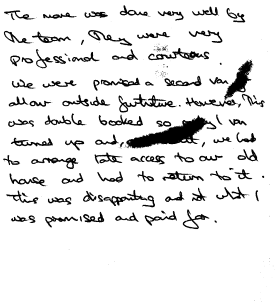 The move was done very well by
the team, they were very
professional and courteous.
We were promised a second van
allow outside furniture. However, this
was double booked so only 1 van
turned up and, we had
to arrange late access to our old
house and had to return to it.
This was disappointing and not what I
was promised and paid for.